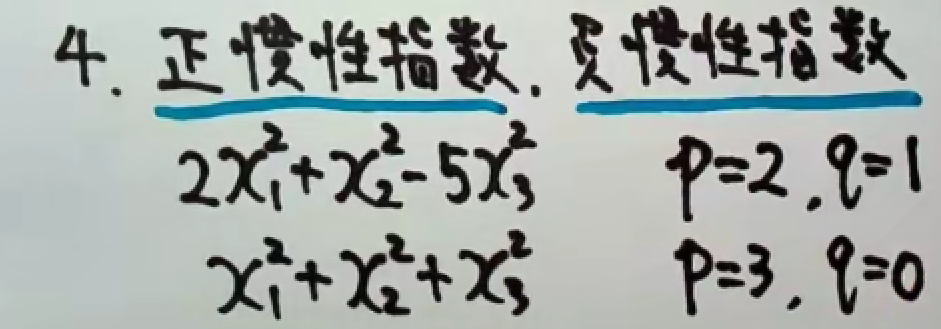 4. 正惯性指数. 负惯性指数
2x₁²+x₂²-5x₃² p=2,q=1
x₁²+x₂²+x₃² p=3,q=0